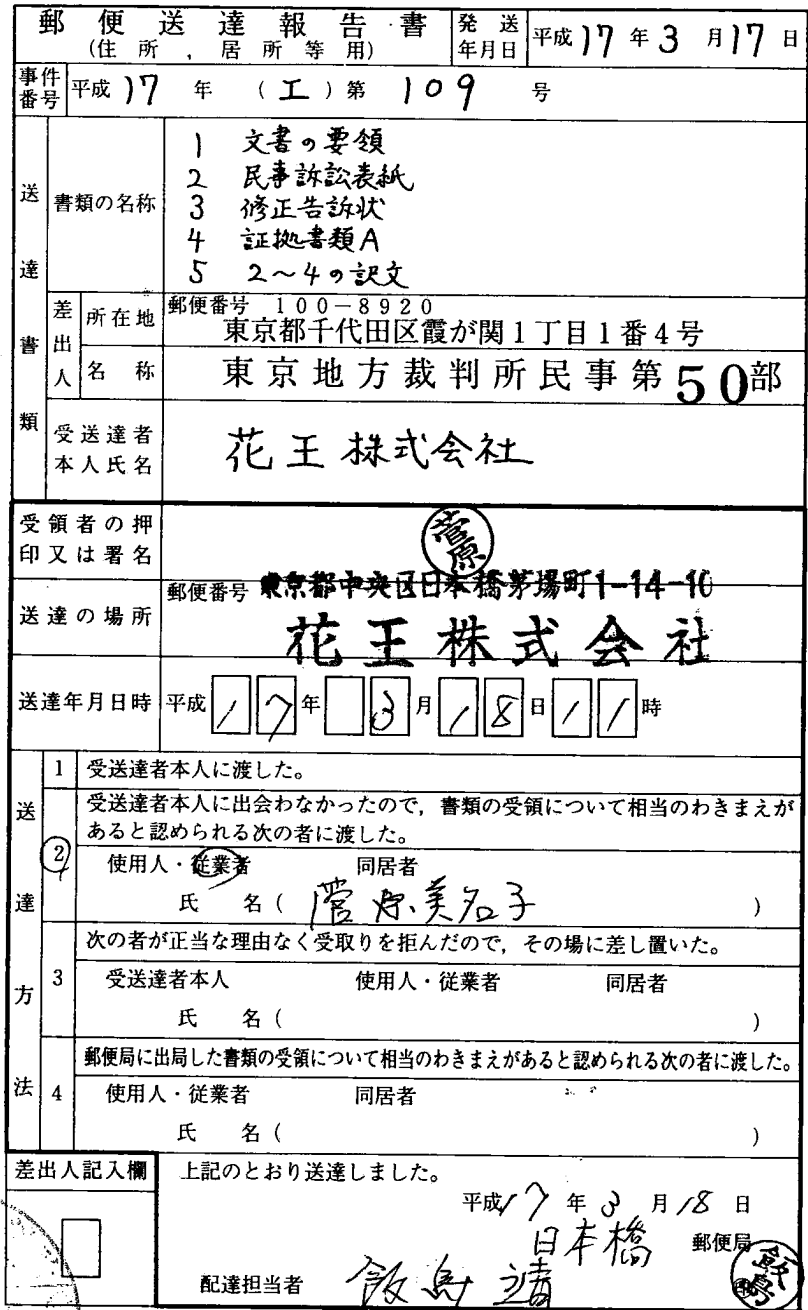 郵便送達報告書
(住所、居所等用)
発送年月日
平成17年3月17日
事件番号
平成17年(エ)第109号
送達書類
書類の名称
1 文書の要領
2 民事訴訟表紙
3 修正告訴状
4 証拠書類A
5 2~4の訳文
差出人
所在地
郵便番号 100-8920
東京都千代田区霞が関1丁目1番4号
名称
東京地方裁判所民事第50部
受送達者本人氏名
花王株式会社
受領者の押印又は署名
菅原
送達の場所
郵便番号
東京都中央区日本橋茅場町1-14-10
花王株式会社
送達年月日時
平成17年3月18日11時
送達方法
1 受送達者本人に渡した。
2 受送達者本人に出会わなかったので,書類の受領について相当のわきまえが
あると認められる次の者に渡した。
使用人・従業者 同居者
氏名(菅原美名子)
3 次の者が正当な理由なく受取りを拒んだので,その場に差し置いた。
受送達者本人 使用人・従業者 同居者
氏名( )
4 郵便局に出局した書類の受領について相当のわきまえがあると認められる次の者に渡した。
使用人・従業者 同居者
氏名( )
差出人記入欄
上記のとおり送達しました。
平成17年3月18日
日本橋郵便局
配達担当者 飯島靖
飯島